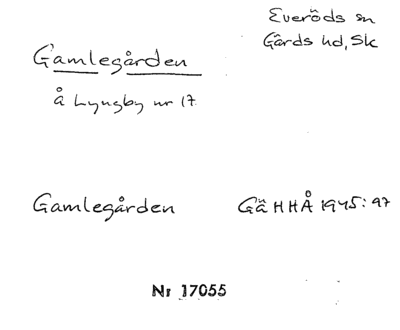 Everöds sn
Gärds hd, Sk
Gamlegården
Å Lyngby nr 17
Gamlegården GäHHÅ 1945:97
Nr 17055